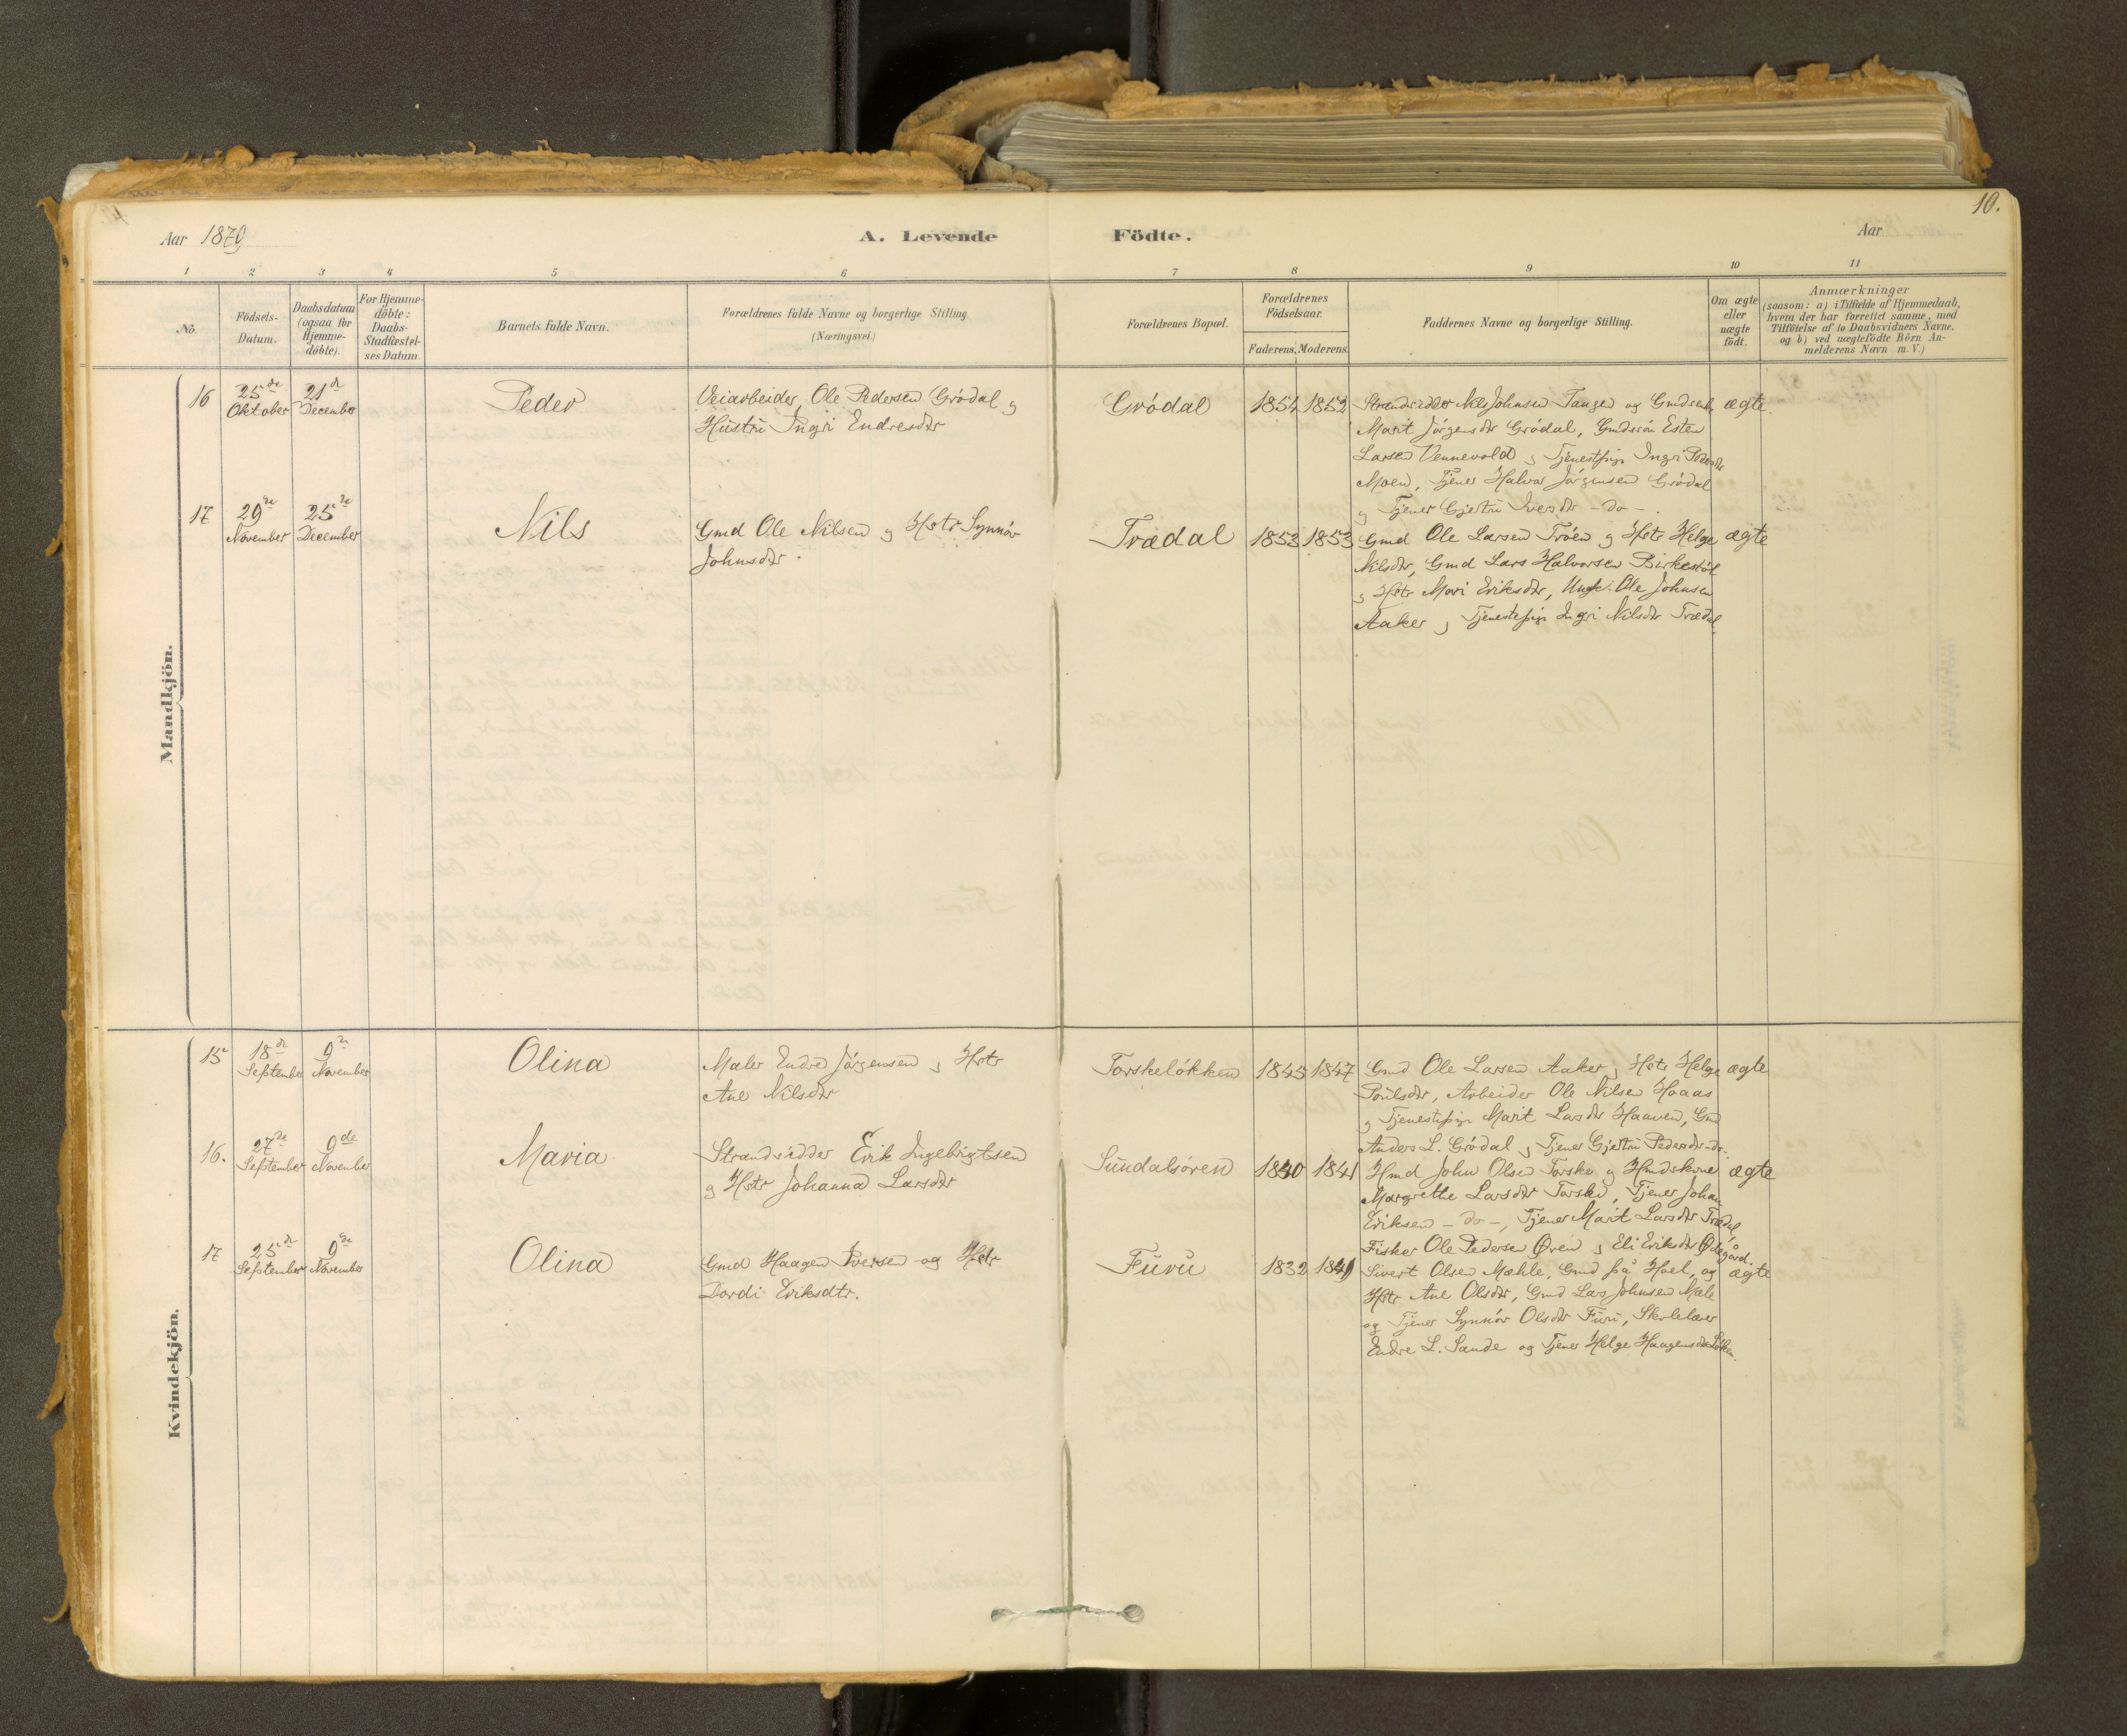 10.
Aar 1879
A. Levende Födte.
Aar
1 2 3 4 5 6 7 8 9 10 11
No.
Födsels-
Datum.
Daabsdatum
(ogsaa for
Hjemme-
döbte).
For Hjemme-
döbte:
Daabs-
Stadfæstel-
ses Datum.
Barnets fulde Navn.
Forældrenes fulde Navne og borgerlige Stilling
(Næringsvei.)
Forældrenes Bopæl.
Forældrenes
Födselsaar.
Faderens, Moderens.
Faddernes Navne og borgerlige Stilling.
Om ægte
eller
uægte
født.
Anmærkninger
(saasom: a) i Tilfælde af Hjemmedaab,
hvem der har forrettet samme, med
Tilføielse af to Daabsvidners Navne.
og b) ved uægtefödte Börn An-
melderens Navn m. V.)
Mandkjön.
16
25de
Oktober
21de
December
Peder
Veiarbeider Ole Pedersen Grödal og
Hustru Ingri Endresdtr
Grödal
1854 1852
Strandsidder Nils Johnsen Tangen og Gmdsenke
Marit Jörgensdtr Grödal, Gmdssön Esten
Larsen Vennevold og Tjenestpige Ingri Pedersdtr
Moen, Tjener Halvor Jörgensen Grödal
og Tjener Gjertru Iversdtr -do-.
ægte.
17
29de
November
25de
December
Nils
Gmd Ole Nilsen og Hstr Synnöv
Johnsdtr.
Trædal
1853 1853
Gmd Ole Larsen Tröen og Hstr Helge
Nilsdtr, Gmd Lars Halvorsen Birkestöl
og Hstr Mari Eriksdtr, Ungk. Ole Johnsen
Aaker og Tjenestepige Ingri Nilsdtr Trædal.
ægte
Kvindekjön.
15
18de
September
9de
November
Olina
Maler Endre Jörgensen og Hstr
Ane Nilsdtr
Torskelökken
1845 1847
Gmd Ole Larsen Aaker og Hstr Helge
Poulsdtr, Arbeider Ole Nilsen Hoaas
og Tjenestepige Marit Larsdtr Haaven, Gmd
Anders L. Grödal og Tjener Gjertru Pedersdtr -do-.
ægte
16.
27de
September
9de
November
Maria
Strandsidder Erik Ingebrigtsen
og Hstr Johanna Larsdtr
Sundalsören
1840 1841
Hmd John Olsen Torske og Hmdskone
Margrethe Larsdtr Torske, Tjener Johan
Eriksen -do-, Tjener Marit Larsdtr Trædal,
Fisker Ole Pedersen Øren og Eli Eriksdtr Ødegård.
ægte
17
25de
September
9de
November
Olina
Gmd Haagen Iversen og Hstr
Dordi Eriksdtr.
Furu
1832
Sivert Olsen Mæhle, Gmd på Hoel, og
Hstr Ane Olsdtr, Gmd Lars Johnsen Mæle
og Tjener Synnöv Olsdtr Furu, Skolelærer
Endre L. Sande og Tjener Helge Haagensdtr Löken.
ægte